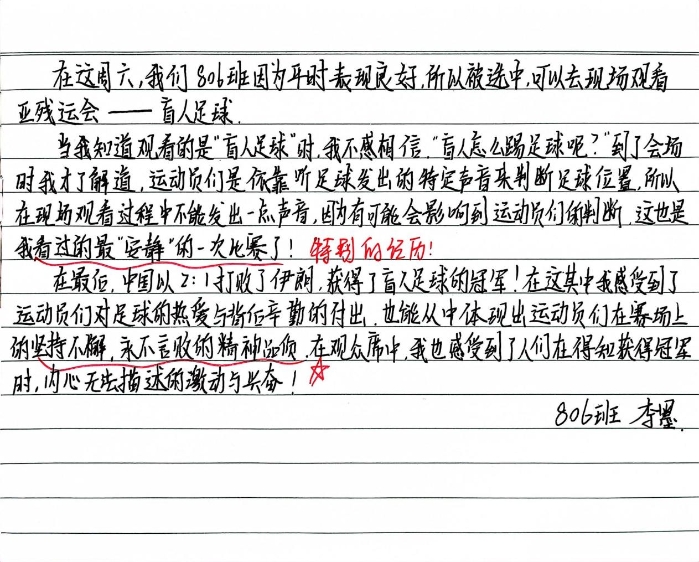 在这周六,我们806班因为平时表现良好,所以被选中,可以去现场观看
亚残运会——盲人足球.
当我知道观看的是“盲人足球”时,我不感相信,“盲人怎么踢足球呢?”到了会场
时我才了解道,运动员们是依靠听足球发出的特定声音来判断足球位置,所以
在现场观看过程中不能发出一点声音,因为有可能会影响到运动员们的判断.这也是
我看过的最“安静”的一次比赛了! 特别的经历!
在最后,中国以2:1打败了伊朗,获得了盲人足球的冠军!在这其中我感受到了
运动员们对足球的热爱与背后辛勤的付出.也能从中体现出运动员们在赛场上
的坚持不懈,永不言败的精神品质.在观众席中,我也感受到了人们在得知获得冠军
时,内心无法描述的激动与兴奋!
806班 李墨.